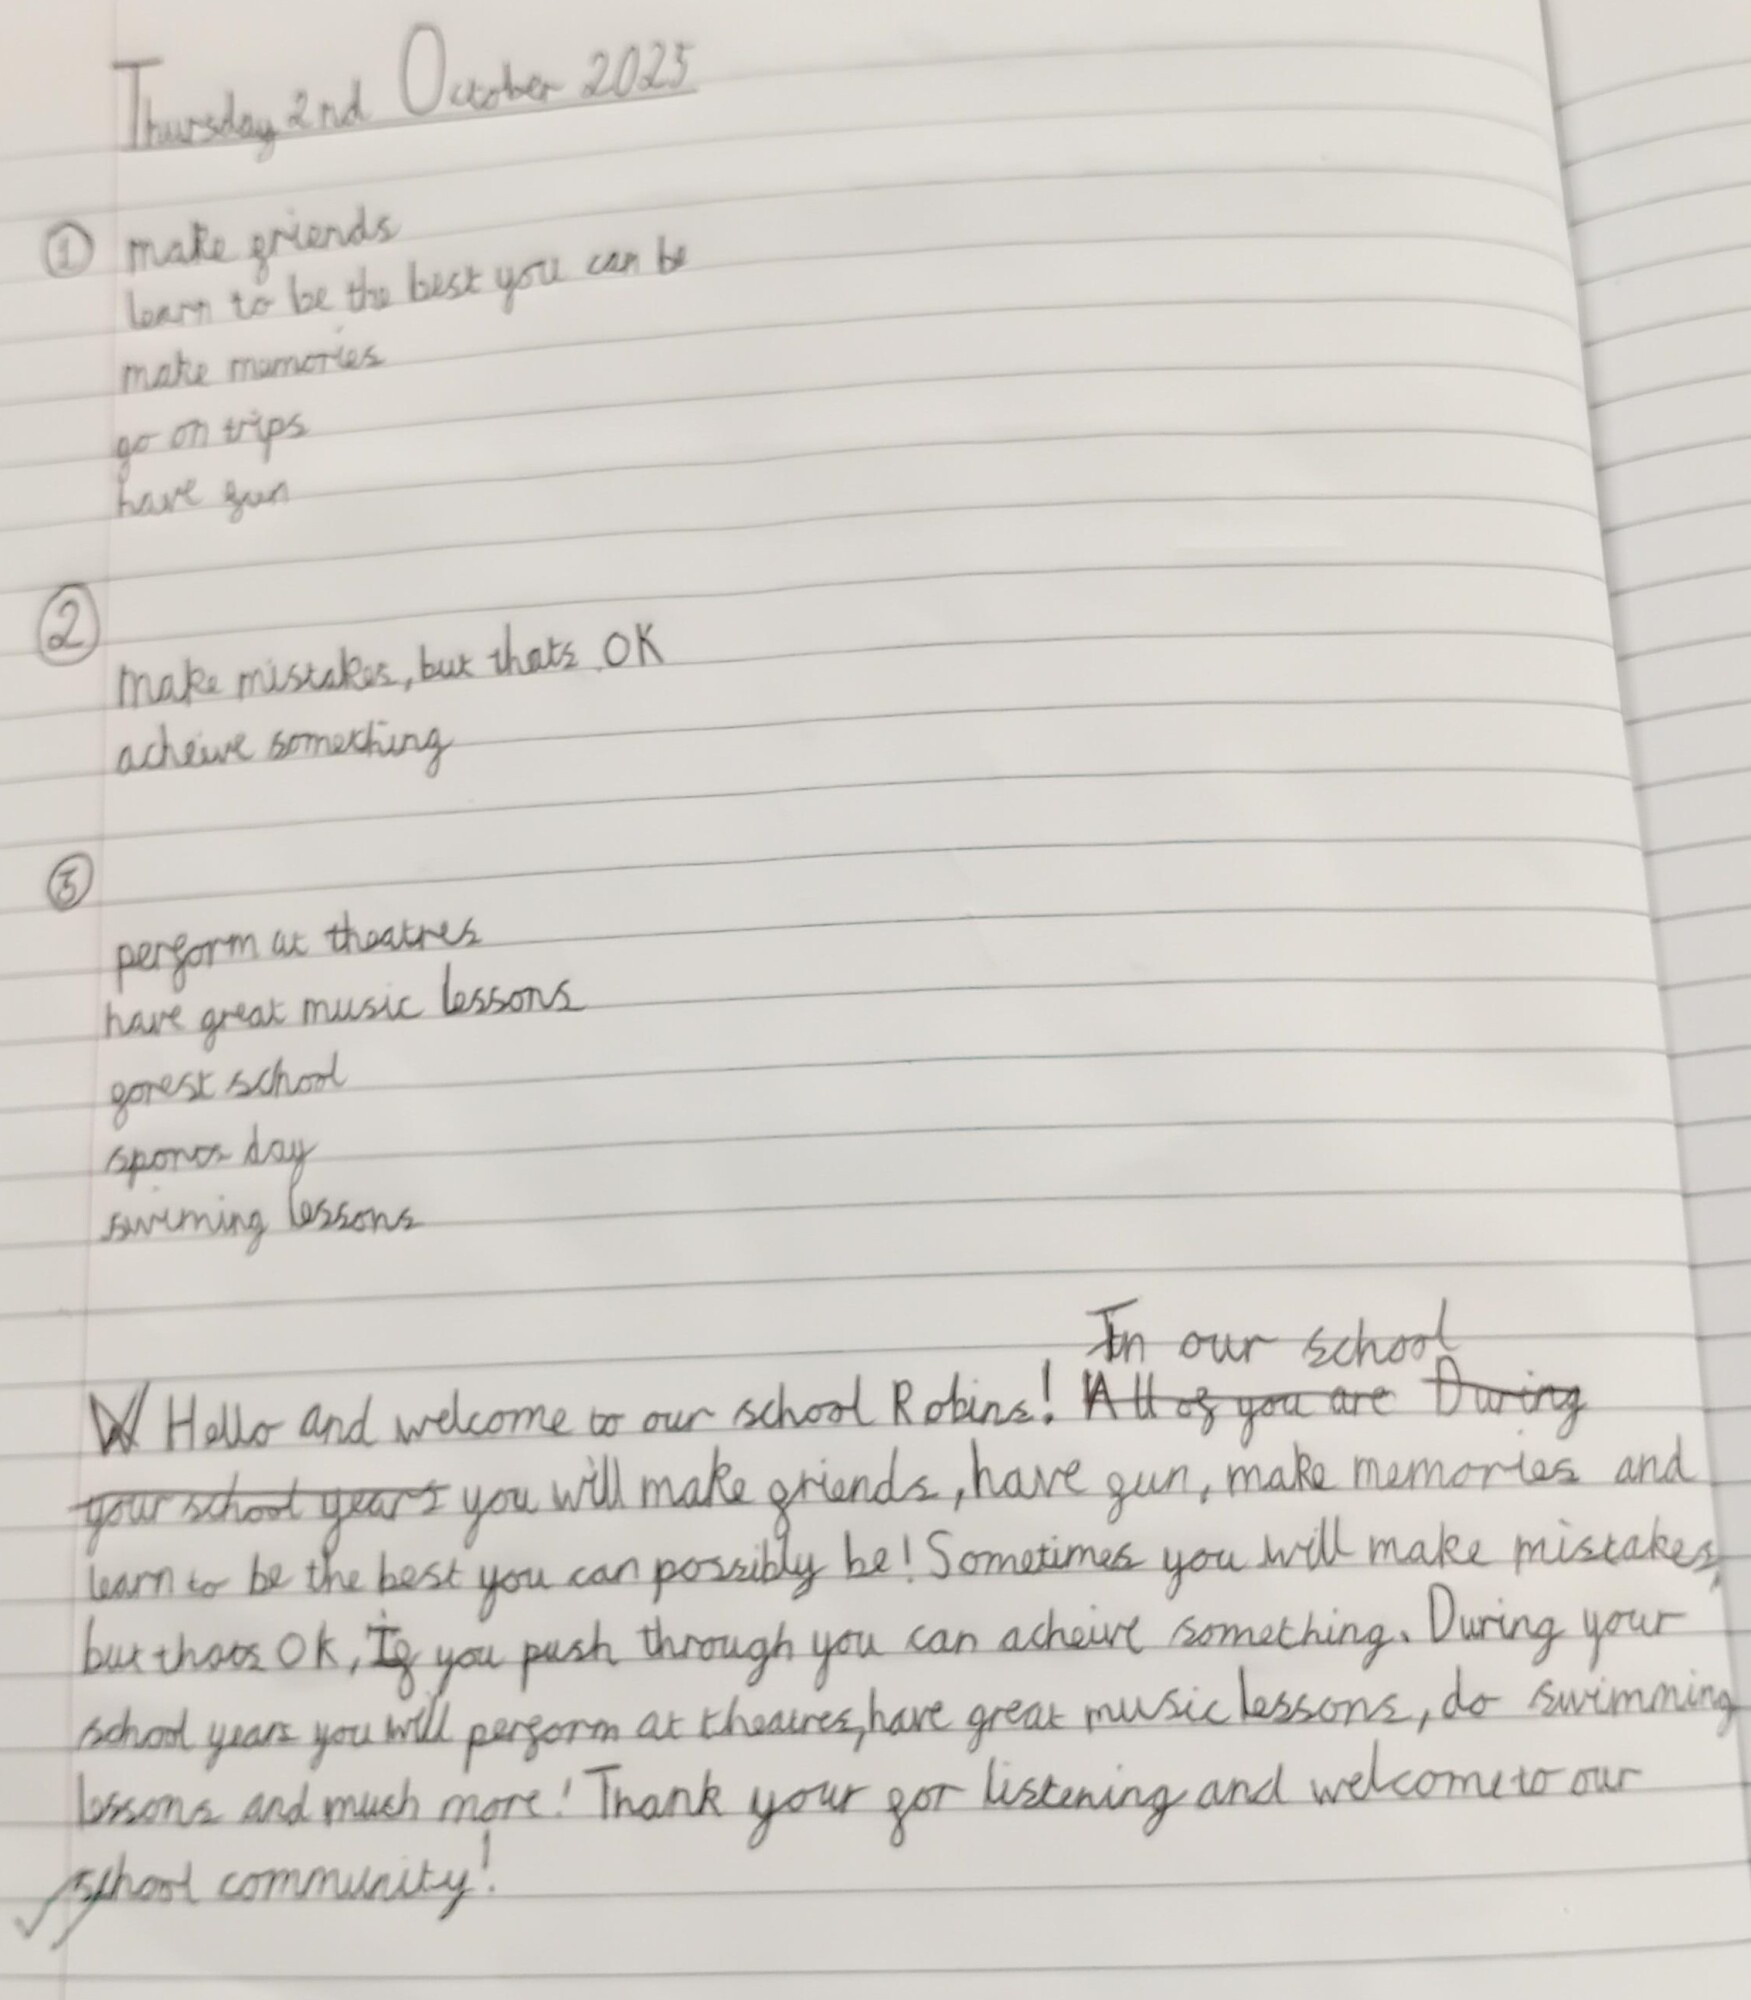 Thursday 2nd October 2025
① make friends
learn to be the best you can be
make memories
go on trips
have fun
②
make mistakes, but thats OK
acheive something
③
perform at theatres
have great music lessons
forest school
sports day
swiming lessons
In our school
W Hello and welcome to our school Robins! All of you are During
your school years you will make friends, have fun, make memories and
learn to be the best you can possibly be! Sometimes you will make mistakes,
but thats OK, If you push through you can acheive something. During your
school years you will perform at theatres, have great music lessons, do swimming
lessons and much more! Thank your for listening and welcome to our
school community!